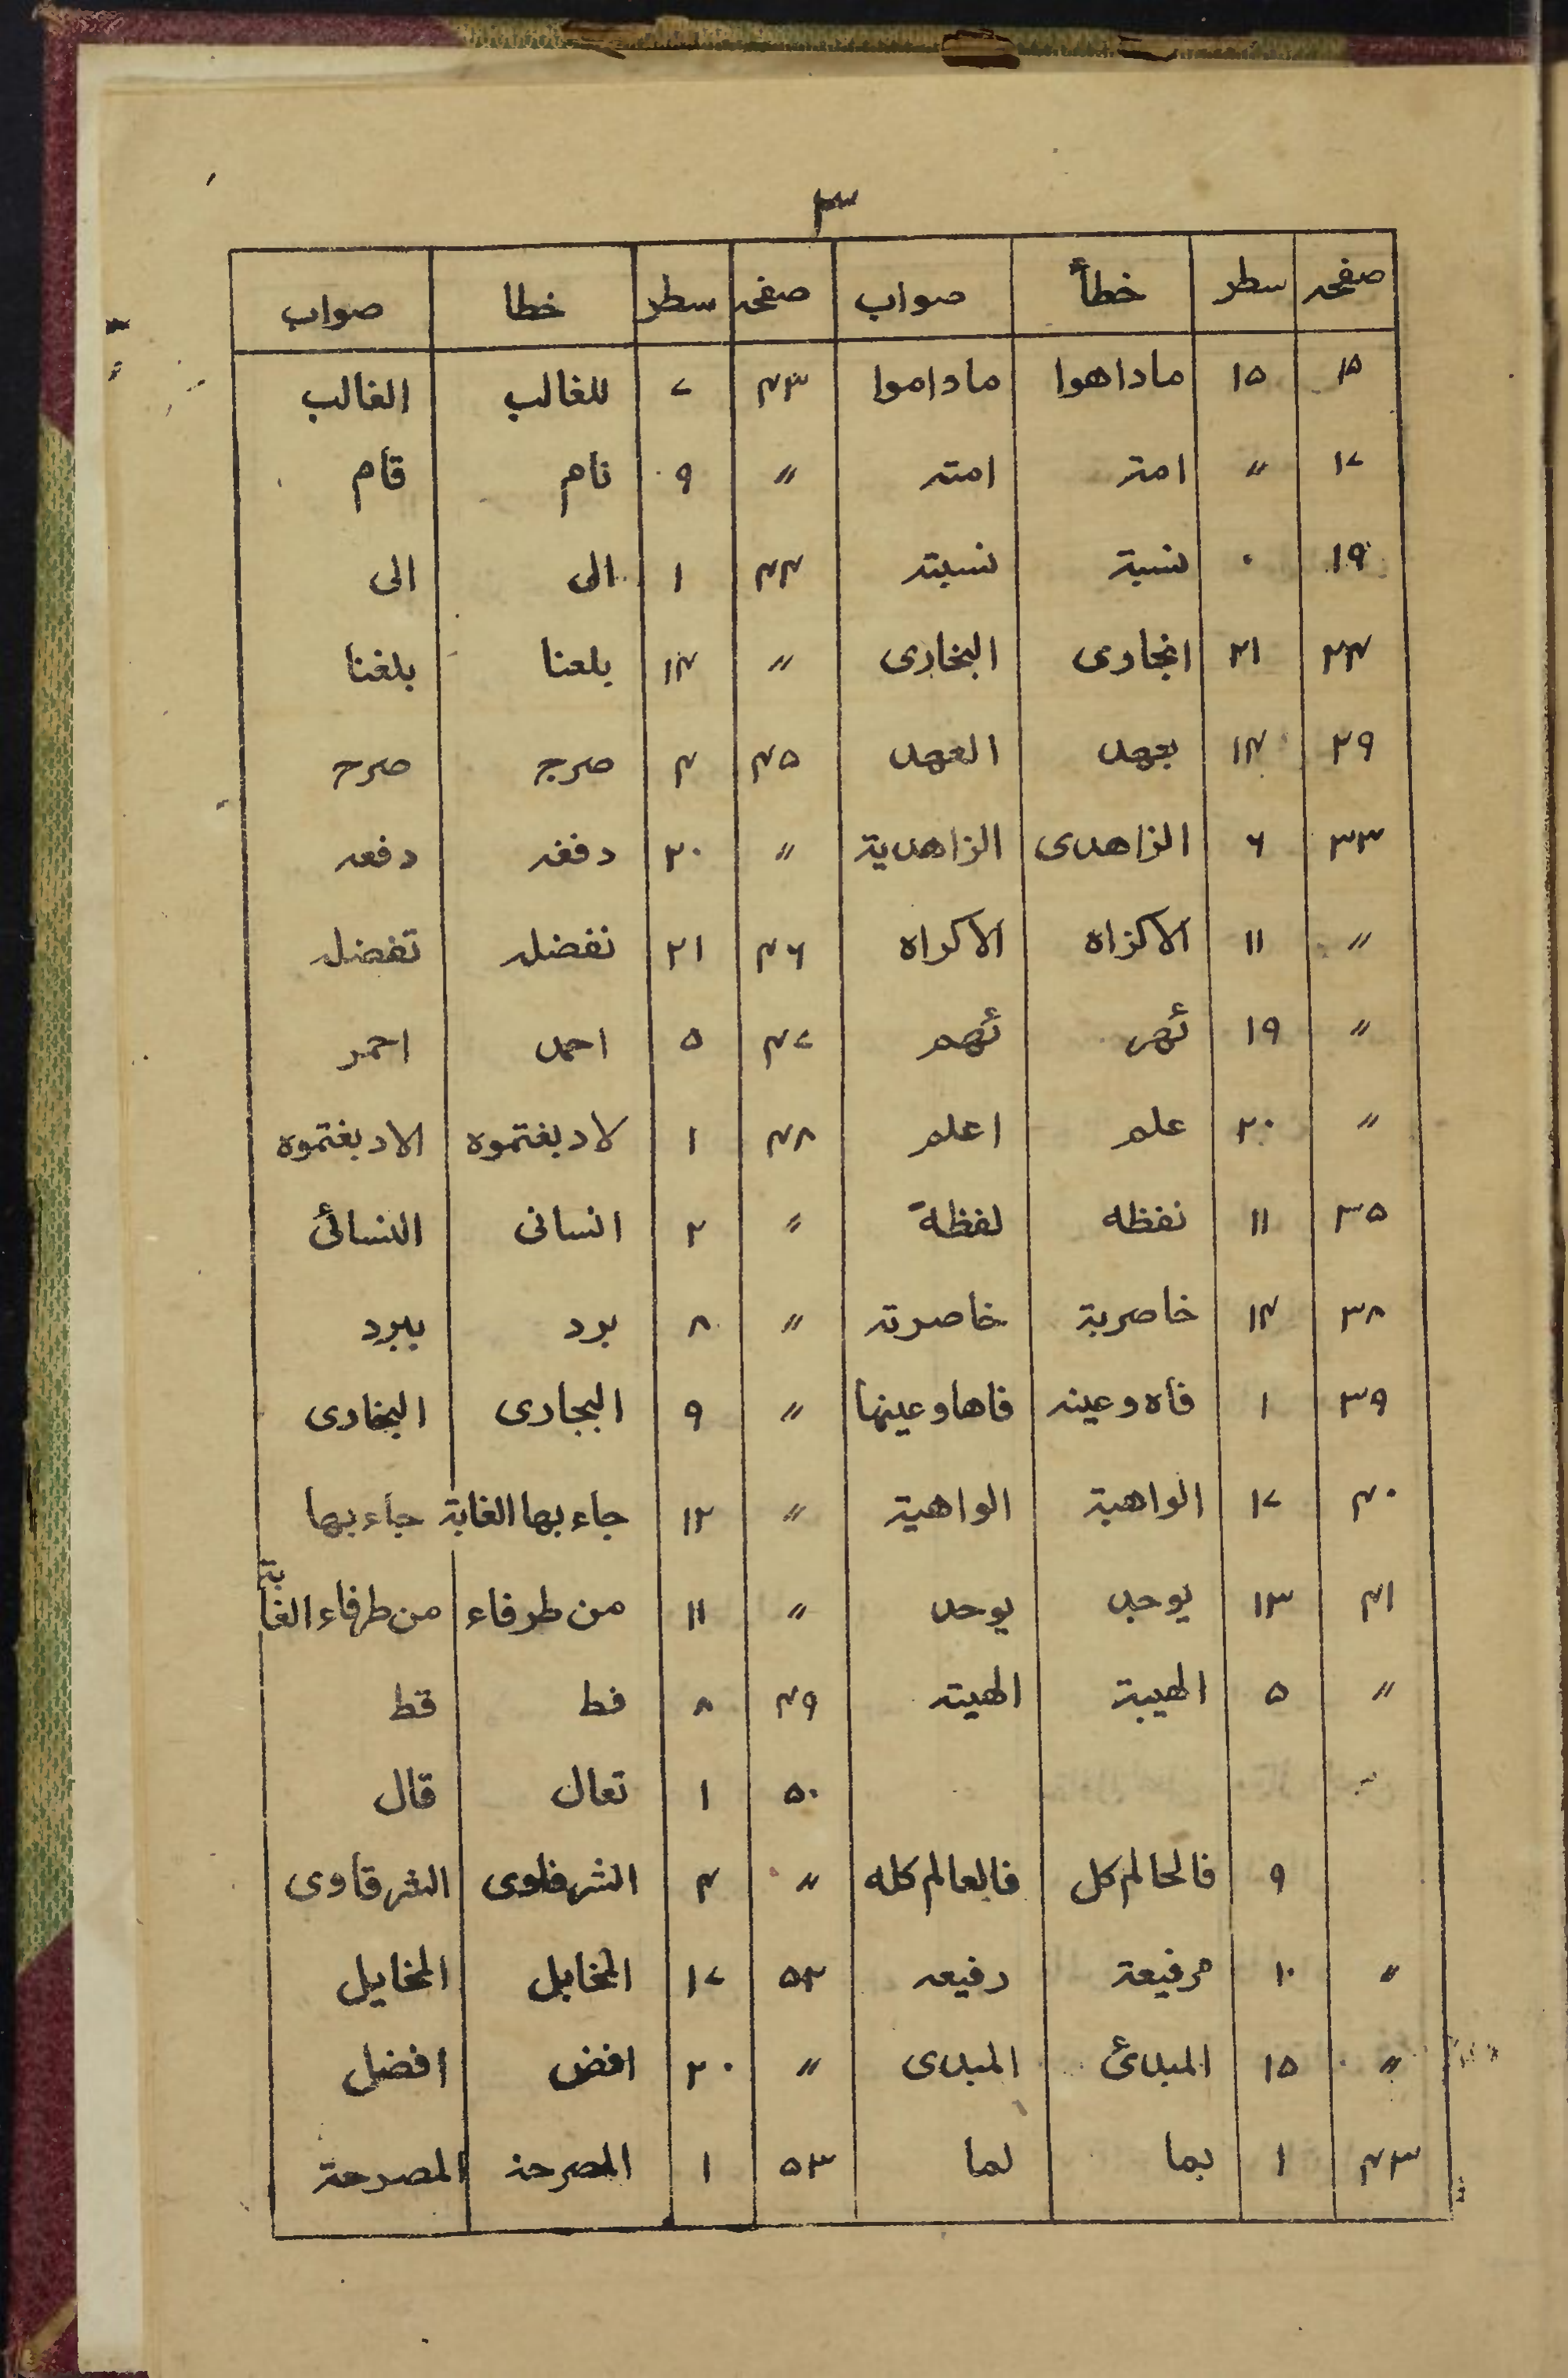 ٣
صفحه سطر خطأ صواب صفحه سطر خطا صواب
١٥ ١٥ ماداهوا ماداموا ٤٣ ٧ للغالب الغالب
١٧ 〃 امتز امته 〃 ٩ نام قام
١٩ ٠ نسبة نسبته ٤٤ ١ الى الى
٢٤ ٢١ انجارى البخارى 〃 ١٤ بلعنا بلغنا
٢٩ ١٤ بعهد العهد ٤٥ ٤ صرج صرح
٣٣ ٦ الزاهدى الزاهدية 〃 ٢٠ دفغه دفعه
〃 ١١ الاكزاه الاكراه ٤٦ ٢١ نفضله تفضله
〃 ١٩ ئهر ئهم ٤٧ ٥ احمد احمر
〃 ٢٠ علم اعلم ٤٨ ١ لادبغتموه الادبغتموه
٣٥ ١١ نفظه لفظة 〃 ٢ انسانى النسائى
٣٨ ١٤ خاصرية خاصرته 〃 ٨ برد ببرد
٣٩ ١ فاه وعينه فاها وعينها 〃 ٩ البجارى البخارى
٤٠ ١٧ الواهبة الواهية 〃 ١٢ جاء بها الغابة جاء بها
٤١ ١٣ يوجد يوحد 〃 ١١ من طرفاء من طرفاء الغابة
〃 ٥ الهيبة الهيته ٤٩ ٨ فط قط
〃 ٥٠ ١ تعال قال
٩ فالحالم كل فالعالم كله 〃 ٤ الشرفاوى الشرقاوى
〃 ١٠ مرفيعة رفيعه ٥٢ ١٧ المخابل المخايل
〃 ١٥ المبدئ المبدى 〃 ٢٠ افض افضل
٤٣ ١ بما لما ٥٣ ١ المصرحذ المصرحة